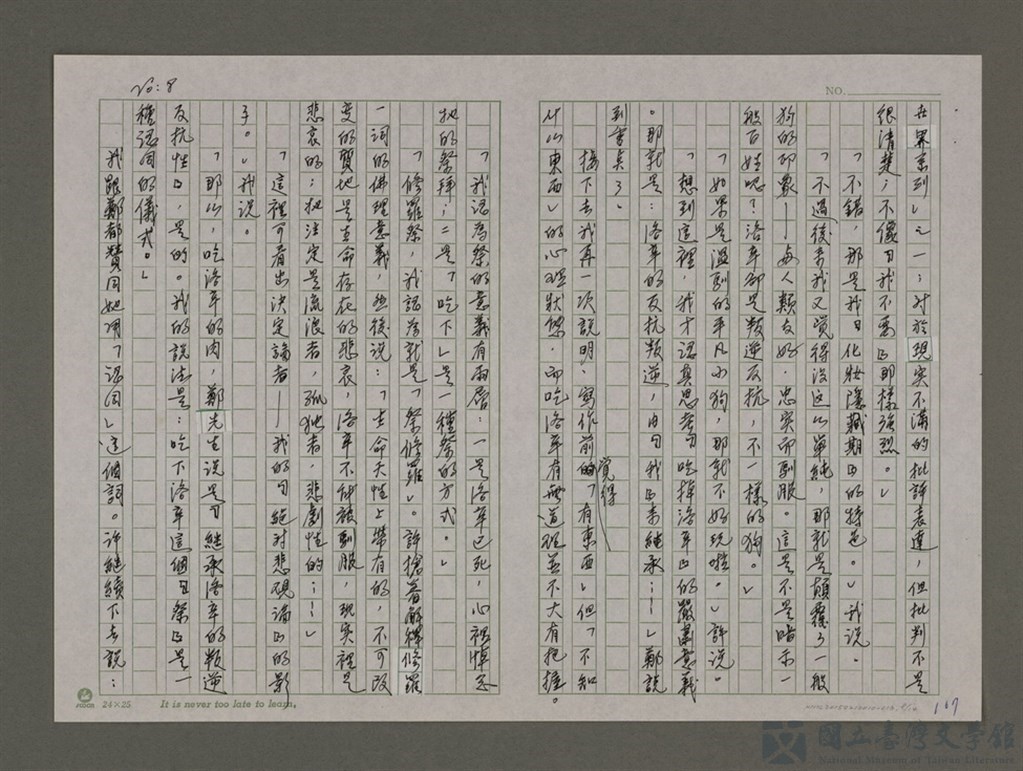 NO.
在界系列」之一；对於現实不滿的批評表達，但批判不是
很清楚；不像『我不要』那樣強烈。」
「不錯，那是我『化妝隱藏期』的特色。」我說。
「不過後来我又覚得没这么單純，那就是顛覆了一般
狗的印象——與人類友好，忠实而馴服。這是不是暗示一
般百姓呢？洛辛卻是叛逆反抗，不一樣的狗。」
「如果是溫馴的平凡小狗，那就不好玩啦。」許說。
「想到這裡，我才認真思考『吃掉洛辛』的嚴肅意義
。那就是：洛辛的反抗叛逆，由『我』来繼承……」鄭說
到重点了。
接下去我再一次說明，寫作前的「覚得有東西」但「不知
什么東西」的心理狀態。而吃洛辛有無道理並不大有把握。
107
No：8
「我認为祭的意義有兩層：一是洛辛已死，心裡悼念
牠的祭拜；二是「吃下」是一種祭的方式。」
「修羅祭，我認为就是「祭修羅」。許搶着解釋修羅
一詞的佛理意義，然後說：「生命天性上帶有的，不可改
变的質地是生命存在的悲哀，洛辛不能被馴服，現实裡是
悲哀的；牠注定是流浪者，孤独者，悲劇性的……」
「這裡可看出決定論者——我的『絕对悲観論』的影
子。」我說。
「那么，吃洛辛的肉，鄭先生說是『繼承洛辛的叛逆
反抗性』，是的。我的說法是：吃下洛辛這個『祭』是一
種認同的儀式。」
我跟鄭都贊同她用「認同」这個詞。许繼续下去說：
24×25 It is never too late to learn.
國立臺灣文學館
National Museum of Taiwan Literature